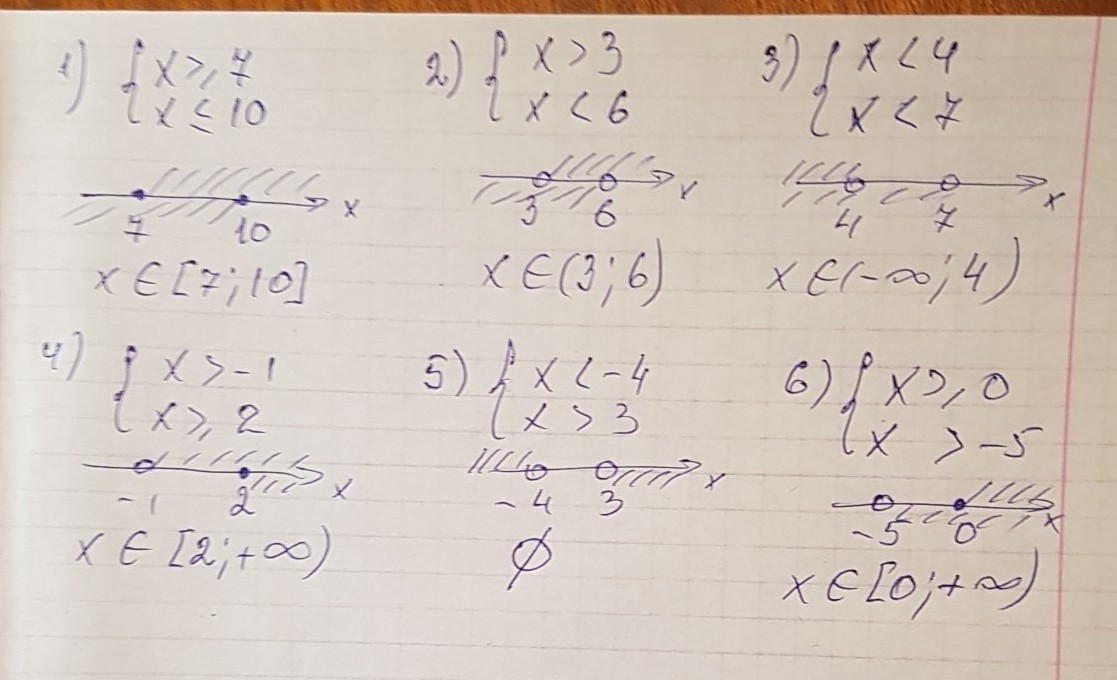 1) { x ⩾ 7
x ≤ 10
7 10 x
x ∈ [7; 10]
2) { x > 3
x < 6
3 6 x
x ∈ (3; 6)
3) { x < 4
x < 7
4 7 x
x ∈ (-∞; 4)
4) { x > -1
x ⩾ 2
-1 2 x
x ∈ [2; +∞)
5) { x < -4
x > 3
-4 3 x
∅
6) { x ⩾ 0
x > -5
-5 0 x
x ∈ [0; +∞)